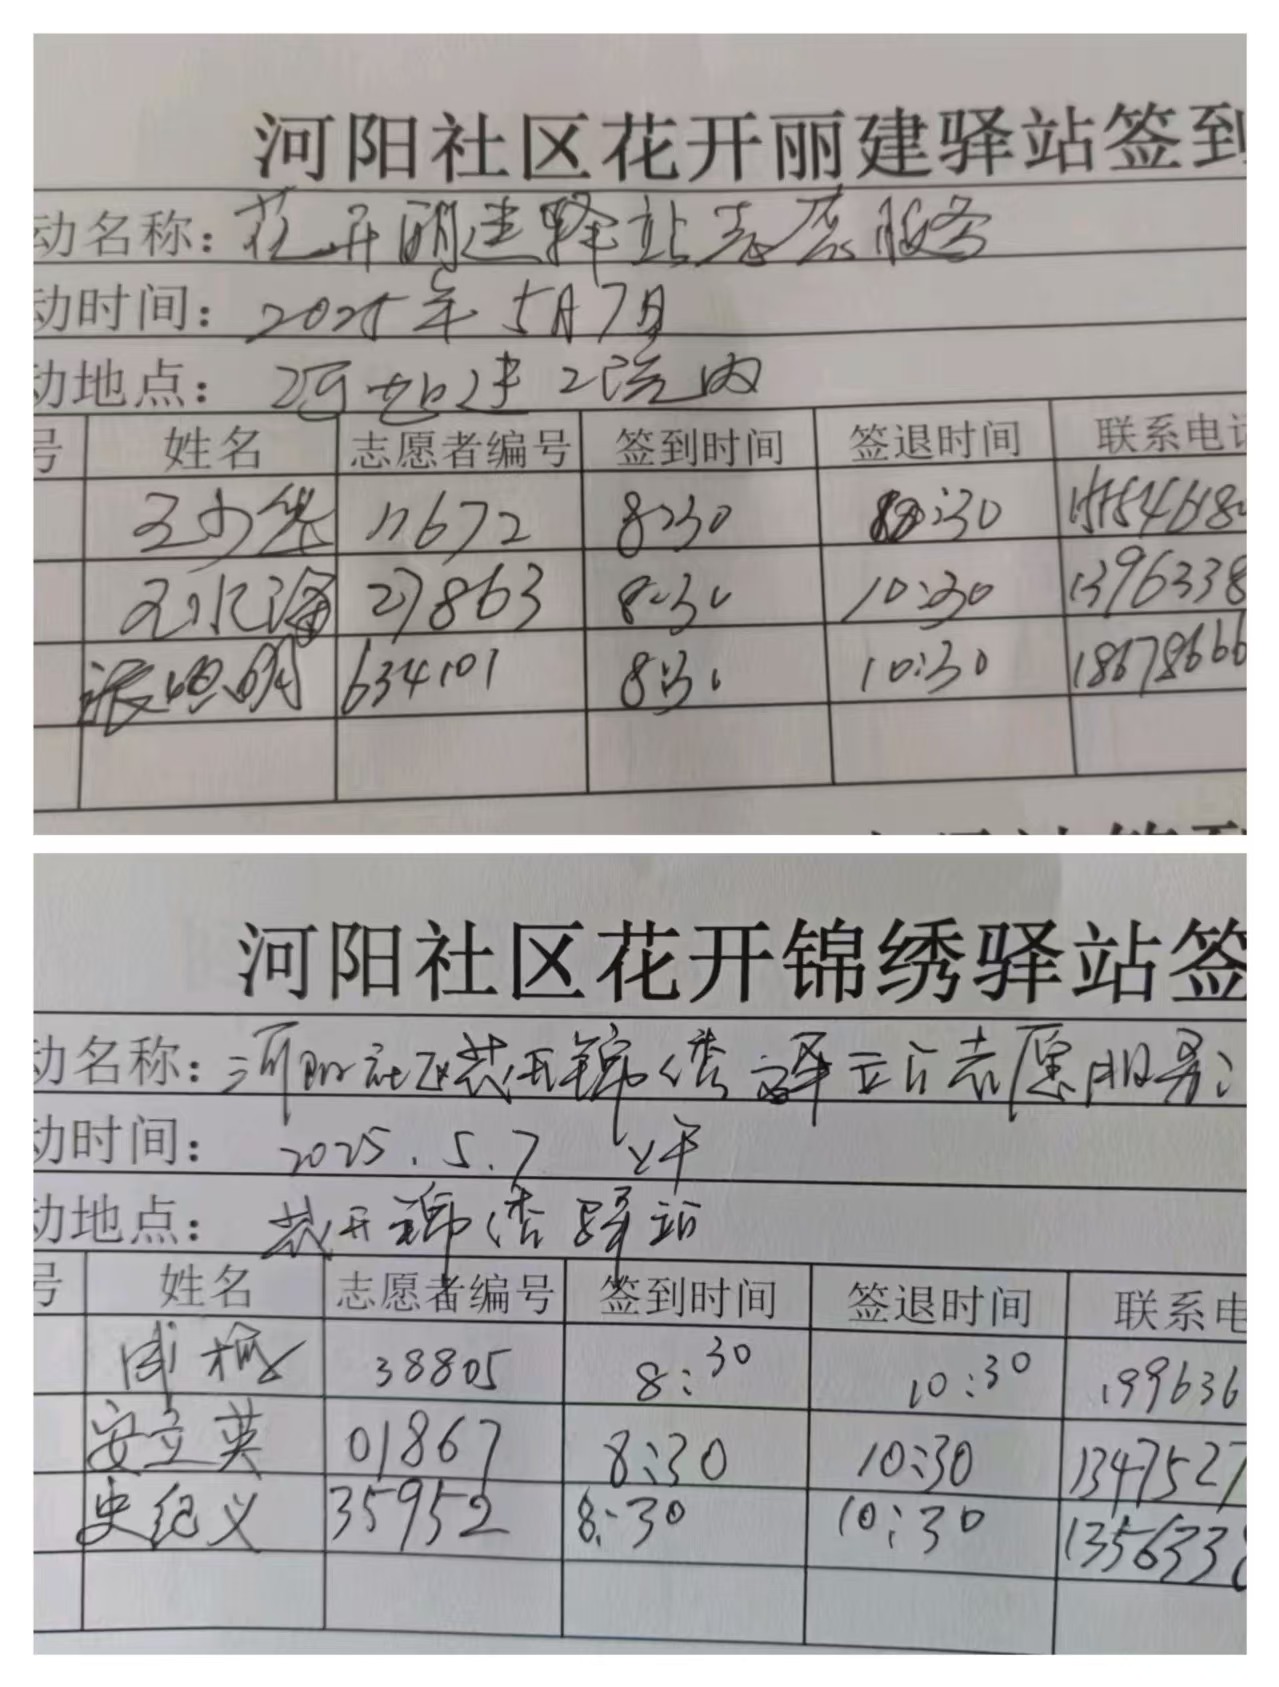 河阳社区花开丽建驿站签到
动名称：花开丽建驿站志愿服务
动时间：2025年5月7日
动地点：
号 姓名 志愿者编号 签到时间 签退时间 联系电话
11672 8:30 10:30
王永海 27863 8:30 10:30 1396338
张明明 634101 8:30 10:30 18678666
河阳社区花开锦绣驿站签
动名称：河阳社区花开锦绣驿站志愿服务
动时间：2025.5.7 上午
动地点：花开锦绣驿站
号 姓名 志愿者编号 签到时间 签退时间 联系电
38805 8:30 10:30 199636
安立英 01867 8:30 10:30 1347527
史纪义 35952 8:30 10:30 1356338